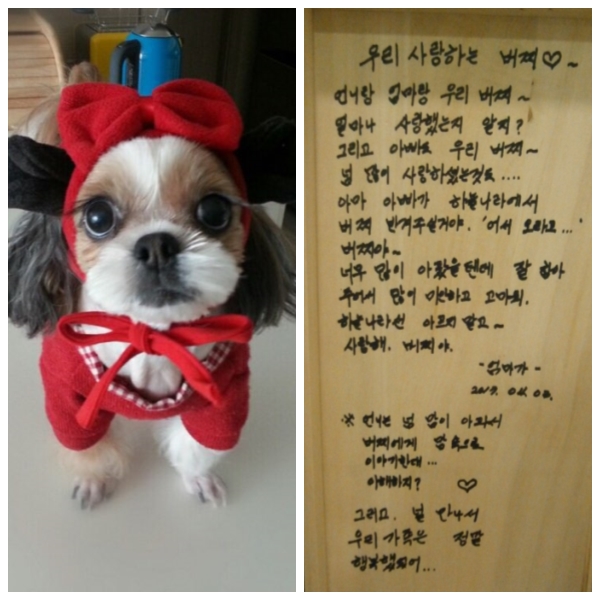 우리 사랑하는 버찌♡~
언니랑 엄마랑 우리 버찌~
얼마나 사랑했는지 알지?
그리고 아빠도 우리 버찌~
널 많이 사랑하셨는것도....
아마 아빠가 하늘나라에서
버찌 반겨주실거야. '어서 오라고...'
버찌야~
너무 많이 아팠을텐데 잘 참아
주어서 많이 미안하고 고마워.
하늘나라선 아프지 말고~
사랑해. 버찌야.
-엄마가-
※ 언니는 넘 많이 아파서
버찌에게 맘속으로
이야기한대...
이해하지? ♡
그리고. 널 만나서
우리 가족은 정말
행복했었어...